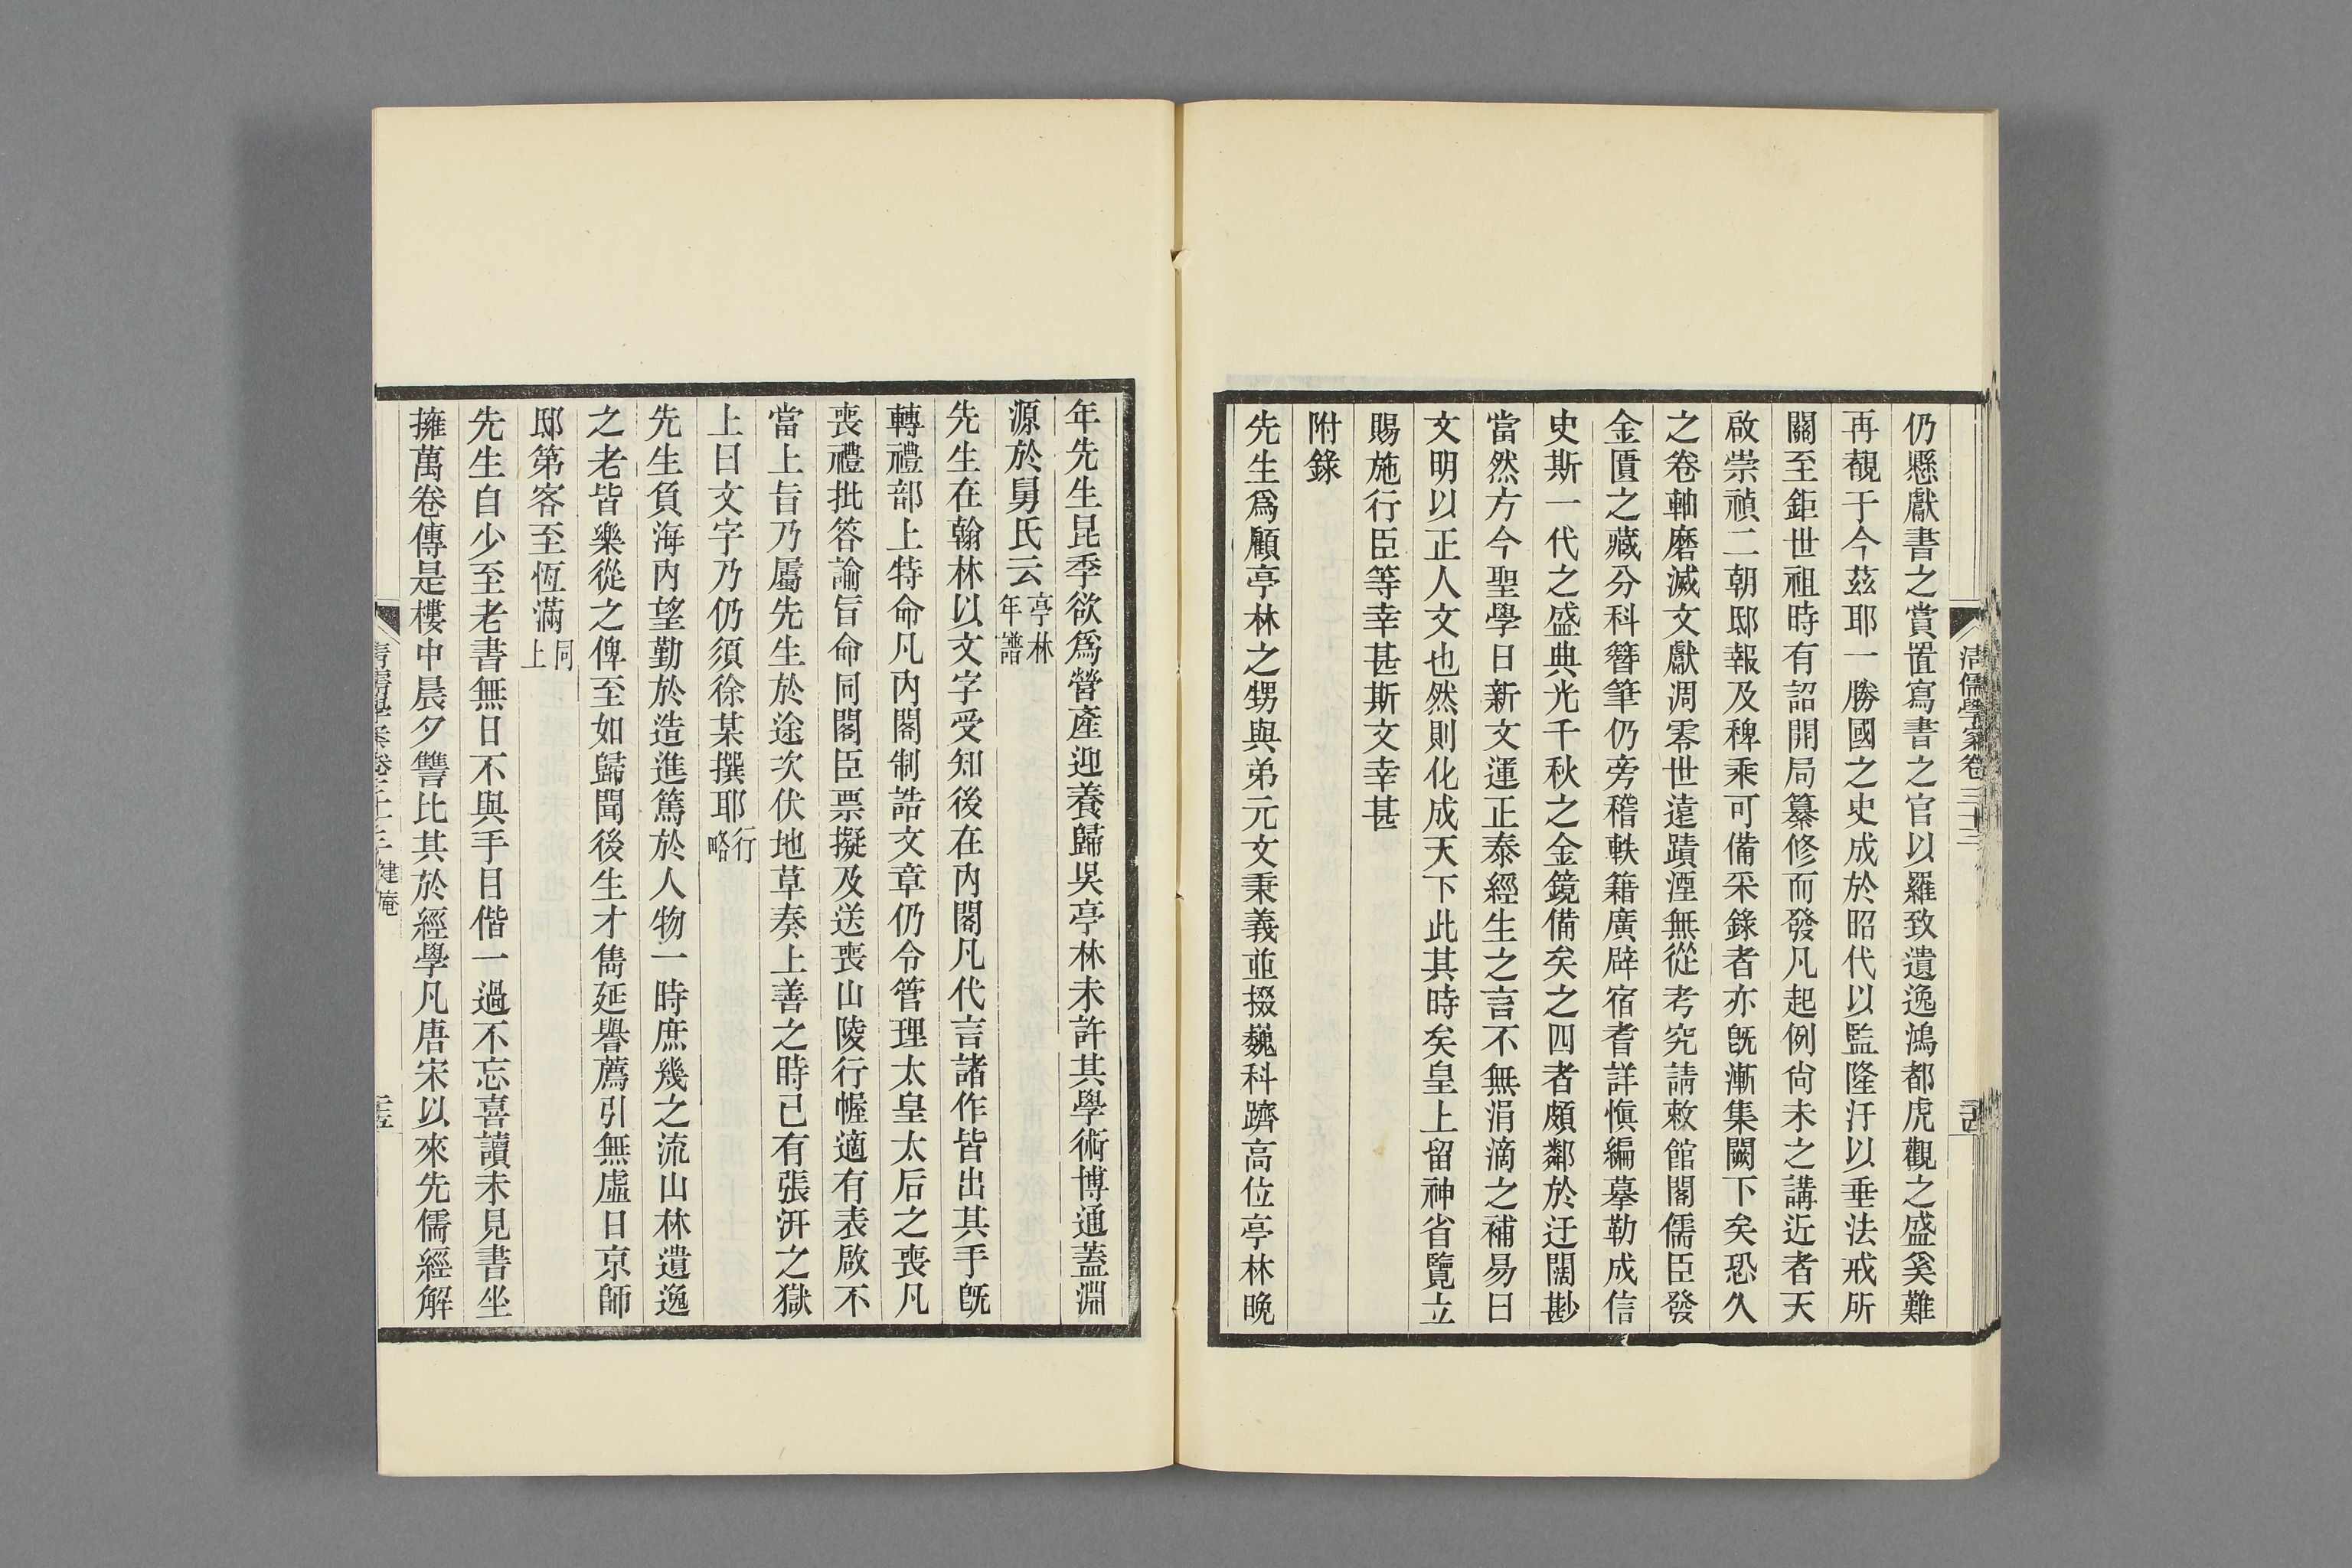 清儒學案卷三十三
仍懸獻書之賞置寫書之官以羅致遺逸鴻都虎觀之盛奚難
再覩于今茲耶一勝國之史成於昭代以監隆汙以垂法戒所
關至鉅世祖時有詔開局纂修而發凡起例尙未之講近者天
啟崇禎二朝邸報及稗乘可備采錄者亦旣漸集闕下矣恐久
之卷軸磨滅文獻凋零世遠蹟湮無從考究請敕館閣儒臣發
金匱之藏分科簪筆仍旁稽軼籍廣辟宿耆詳愼編摹勒成信
史斯一代之盛典光千秋之金鏡備矣之四者頗鄰於迂闊尠
當然方今聖學日新文運正泰經生之言不無涓滴之補易曰
文明以正人文也然則化成天下此其時矣皇上留神省覽立
賜施行臣等幸甚斯文幸甚
附錄
先生爲顧亭林之甥與弟元文秉義並掇巍科躋高位亭林晚
年先生昆季欲爲營產迎養歸吳亭林未許其學術博通蓋淵
源於舅氏云亭林年譜
先生在翰林以文字受知後在內閣凡代言諸作皆出其手旣
轉禮部上特命凡內閣制誥文章仍令管理太皇太后之喪凡
喪禮批答諭旨命同閣臣票擬及送喪山陵行幄適有表啟不
當上旨乃屬先生於途次伏地草奏上善之時已有張汧之獄
上曰文字乃仍須徐某撰耶行略
先生負海內望勤於造進篤於人物一時庶幾之流山林遺逸
之老皆樂從之俾至如歸聞後生才雋延譽薦引無虛日京師
邸第客至恆滿同上
先生自少至老書無日不與手目偕一過不忘喜讀未見書坐
擁萬卷傳是樓中晨夕讐比其於經學凡唐宋以來先儒經解
清儒學案卷三十三 健庵